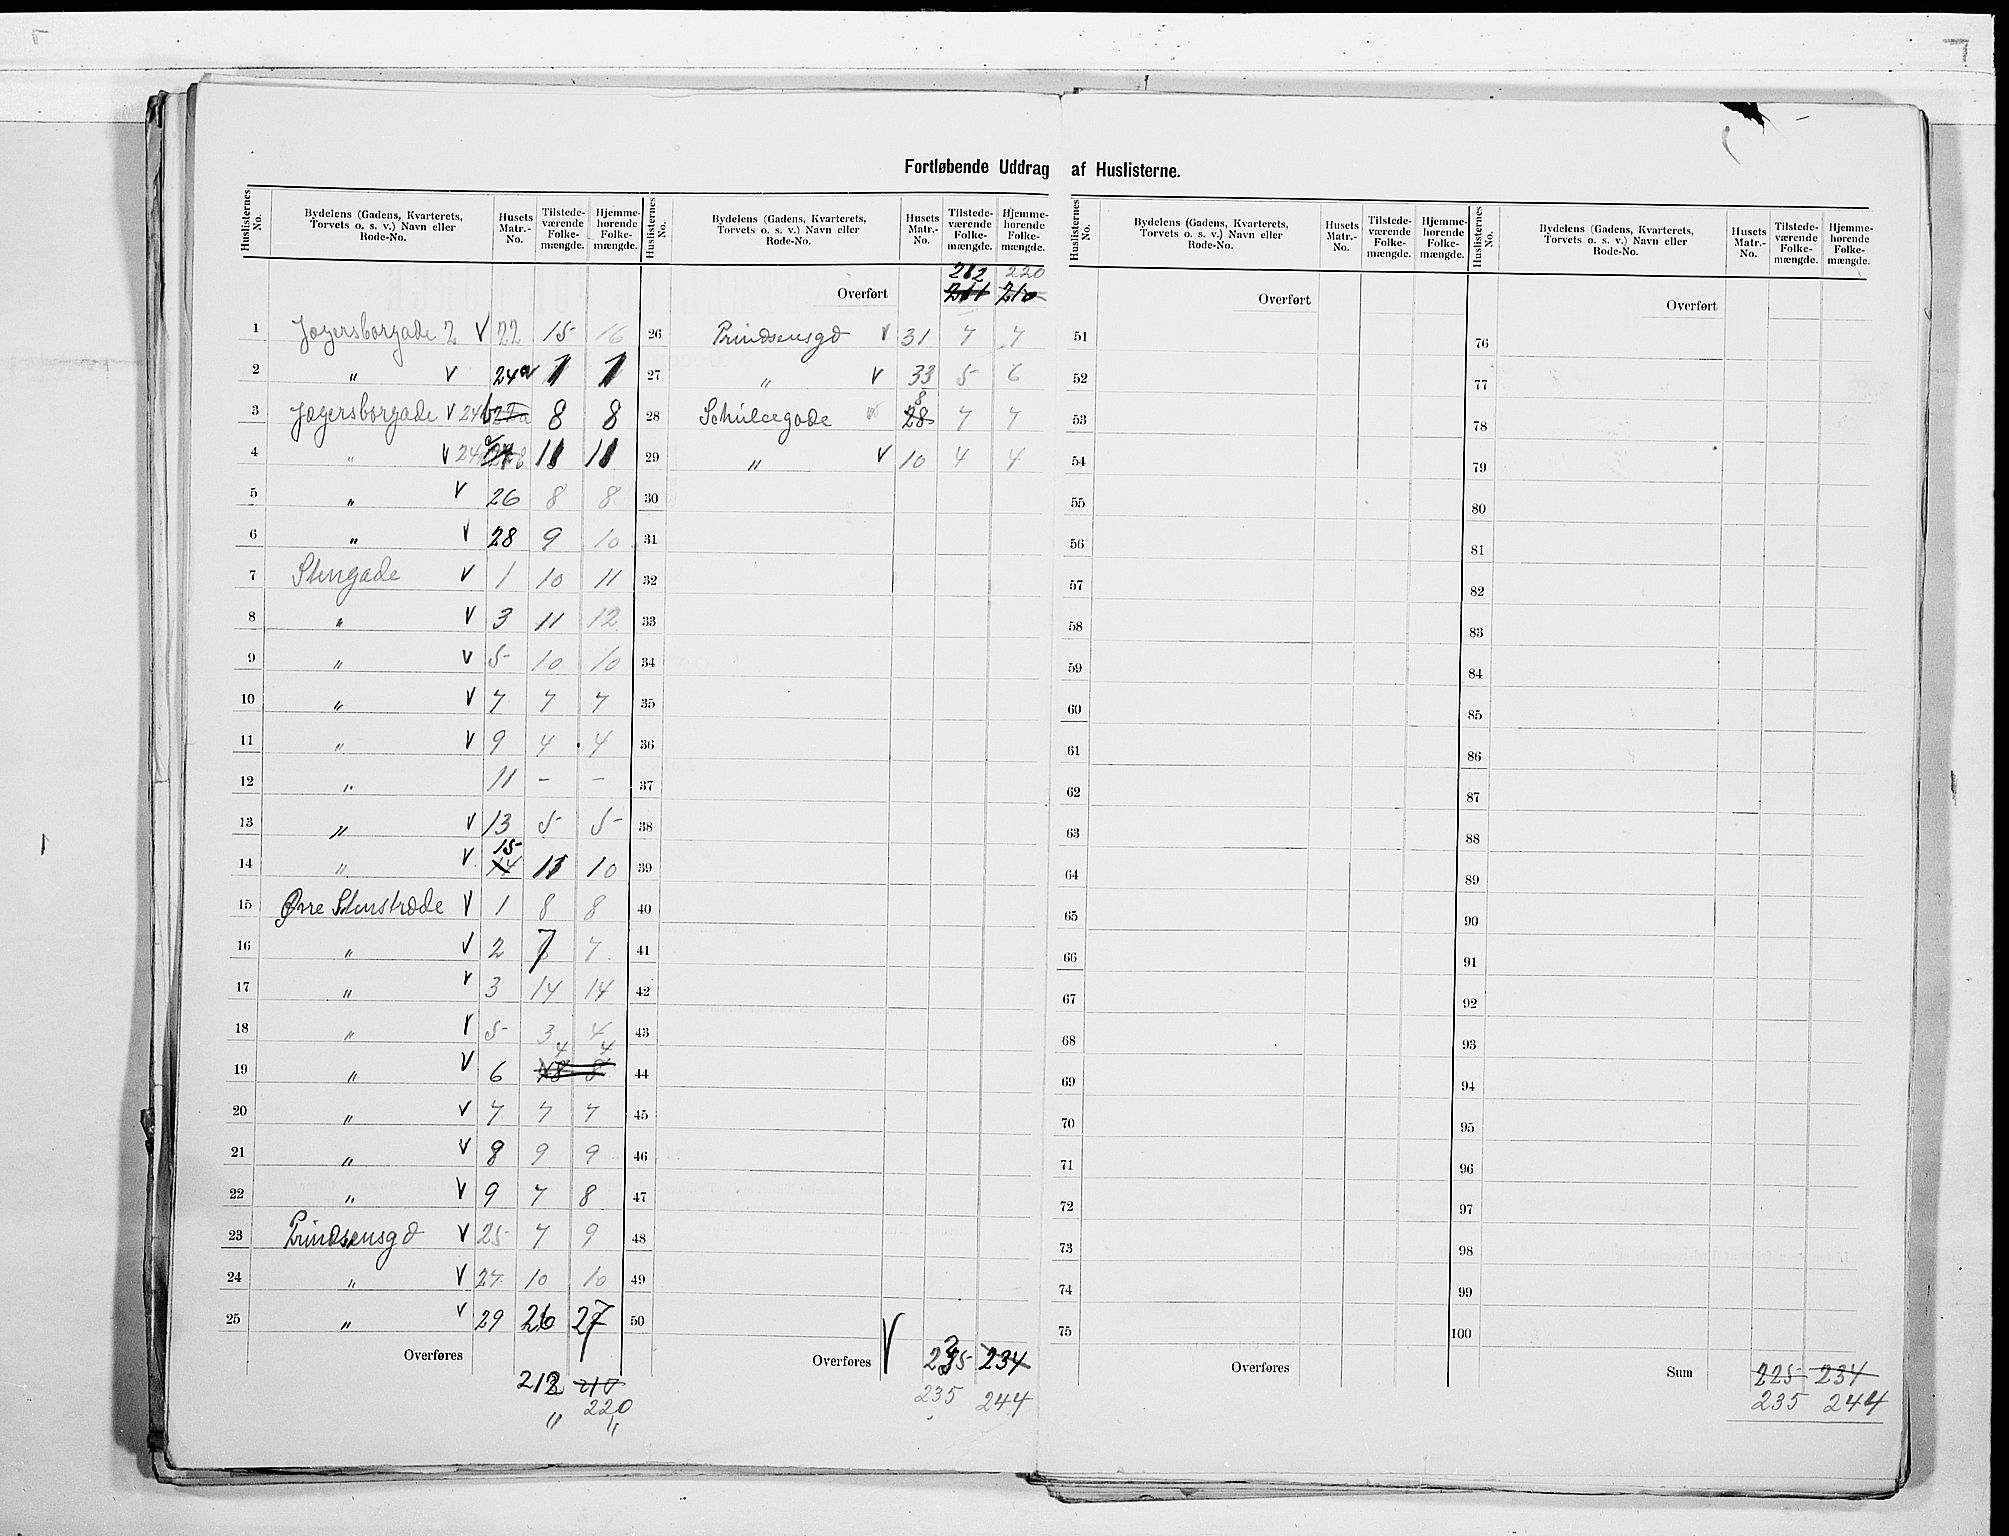 Fortløbende Uddrag af Huslisterne.
Huslisternes No. | Bydelens (Gadens, Kvarterets, Torvets o. s. v.) Navn eller Rode-No. | Husets Matr.-No. | Tilstede-værende Folke-mængde. | Hjemme-hørende Folke-mængde.
Huslisternes No. | Bydelens (Gadens, Kvarterets, Torvets o. s. v.) Navn eller Rode-No. | Husets Matr.-No. | Tilstede-værende Folke-mængde. | Hjemme-hørende Folke-mængde.
Huslisternes No. | Bydelens (Gadens, Kvarterets, Torvets o. s. v.) Navn eller Rode-No. | Husets Matr.-No. | Tilstede-værende Folke-mængde. | Hjemme-hørende Folke-mængde.
Huslisternes No. | Bydelens (Gadens, Kvarterets, Torvets o. s. v.) Navn eller Rode-No. | Husets Matr.-No. | Tilstede-værende Folke-mængde. | Hjemme-hørende Folke-mængde.
1 Jægersborgade 2 V 22 15 16
2 " V 24a 1 1
3 Jægersborgade V 24b 8 8
4 " V 24 11 11
5 " V 26 8 8
6 " V 28 9 10
7 Stengade V 1 10 11
8 " V 3 11 12
9 " V 5 10 10
10 " V 7 7 7
11 " V 9 4 4
12 " 11 - -
13 " V 13 5 5
14 " V 15 14 11 10
15 Øvre Stenstræde V 1 8 8
16 " V 2 7 7
17 " V 3 14 14
18 " V 5 3 4
19 " V 6 4 4
20 " V 7 7 7
21 " V 8 9 9
22 " V 9 7 8
23 Prindsensgd V 25 7 9
24 " V 27 10 10
25 " V 29 26 27
Overføres
212 210
220
" "
212 220
Overført 211 210
26 Prindsensgd V 31 7 7
27 " V 33 5 6
28 Schulcegade V 8 28 7 7
29 " V 10 4 4
30
31
32
33
34
35
36
37
38
39
40
41
42
43
44
45
46
47
48
49
50
Overføres V 235 234
235 244
Overført
51
52
53
54
55
56
57
58
59
60
61
62
63
64
65
66
67
68
69
70
71
72
73
74
75
Overføres
Overført
76
77
78
79
80
81
82
83
84
85
86
87
88
89
90
91
92
93
94
95
96
97
98
99
100
Sum 225 234
235 244